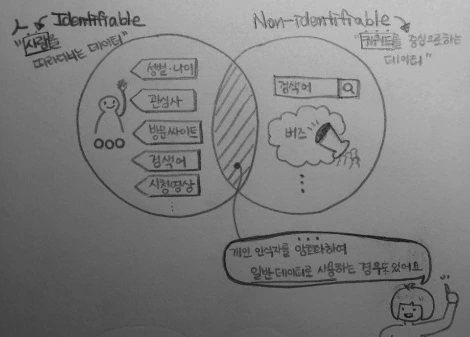 Identifiable
"사람을
따라다니는 데이터"
Non-identifiable
"키워드를 중심으로하는
데이터"
성별·나이
관심사
방문싸이트
검색어
시청영상
검색어
버즈
개인 인식자를 암호화하여
일반데이터로 사용하는 경우도있어요